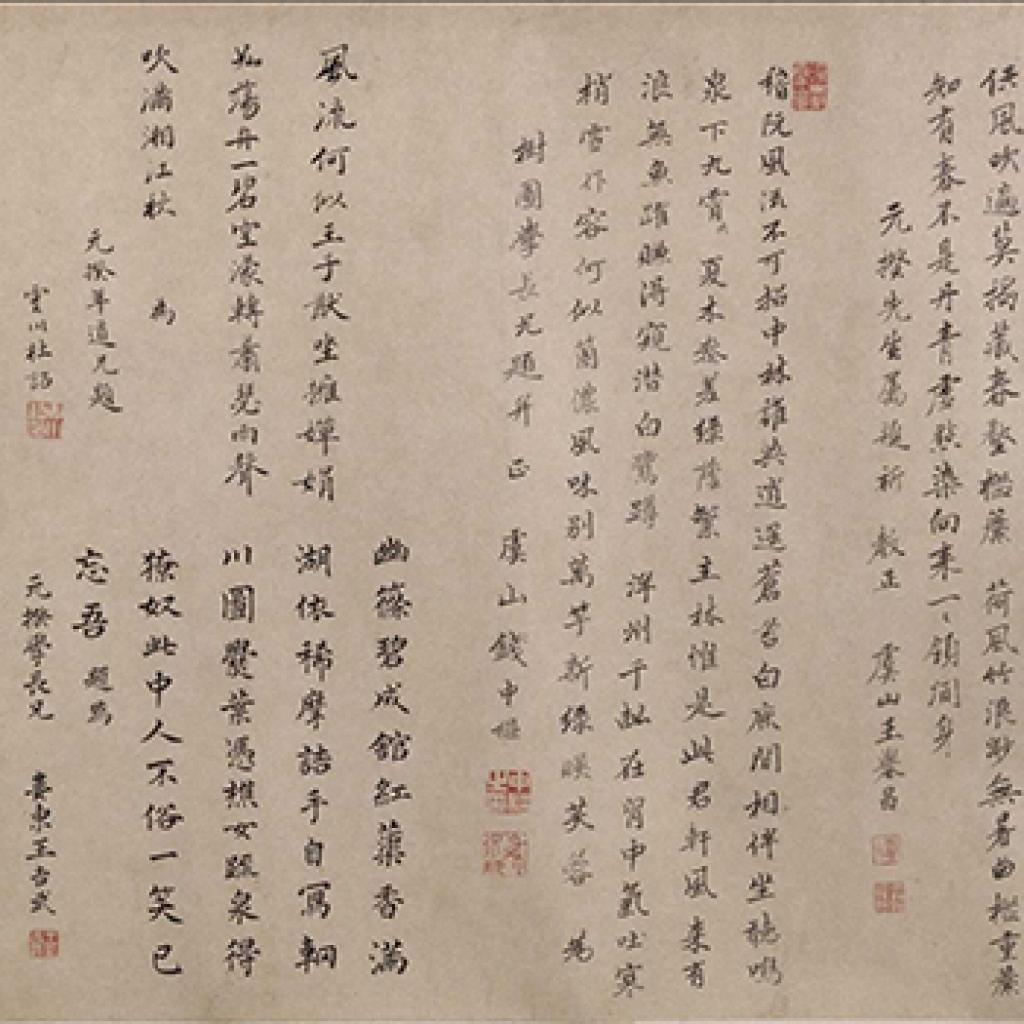 供風吹遍莫揭藏春墅檻簾 荷風竹浪眇無暑曲檻重簾
知有春不是丹青處點染向來一一領閒身
元揆先生屬題祈 教正 虞山王譽昌
嵇阮風流不可招中林誰與逍遥蒼苔白石間相伴坐聽
泉下九霄 夏木參差綠陰繁主林惟是此君軒風來有
浪無魚躍 得窺潛白鷺蹲 洋州千畝在胸中氣吐寒
梢雪作容何似箇濃風味別萬竿新綠映芙蓉 為
樹園學長兄題并 正 虞山錢中樞
風流何似王子猷坐擁嬋娟
共蕩舟一碧空濛轉蕭瑟雨聲
吹滿湘江秋 為
元揆年道兄題
雲川杜詔
幽篠碧成館紅蕖香滿
湖依稀摩詰手自寫輞
川圖爨葉憑樵女踞泉得
獠奴此中人不俗一笑已
忘吾 題為
元揆學長兄 婁東王吉武